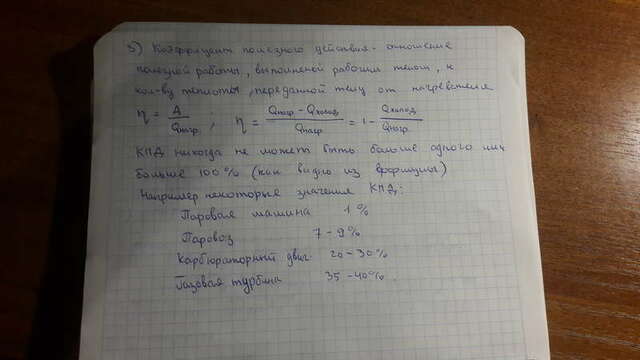 3) Коэффициент полезного действия - отношение
полезной работы, выполненой рабочим телом, к
кол-ву теплоты, переданной телу от нагревателя
η = A / Qнагр ; η = Qнагр - Qхолод / Qнагр = 1 - Qхолод / Qнагр
КПД никогда не может быть больше одного или
больше 100% (как видно из формулы)
Например некоторые значения КПД:
Паровая машина 1%
Паровоз 7-9%
Карбюраторный двиг. 20-30%
Газовая турбина 35-40%